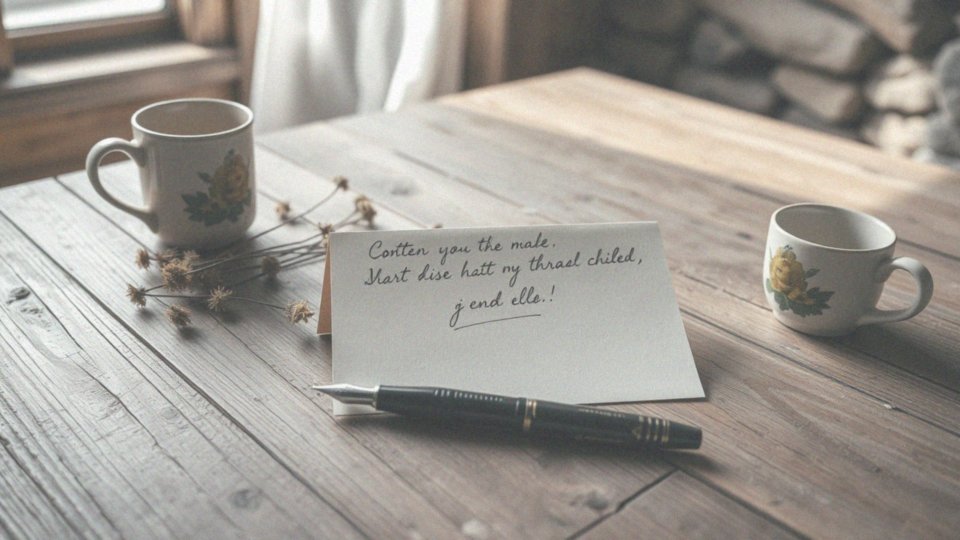 Conten you the male.
Shart dise hatt ny thraal chiled,
j end elle.!